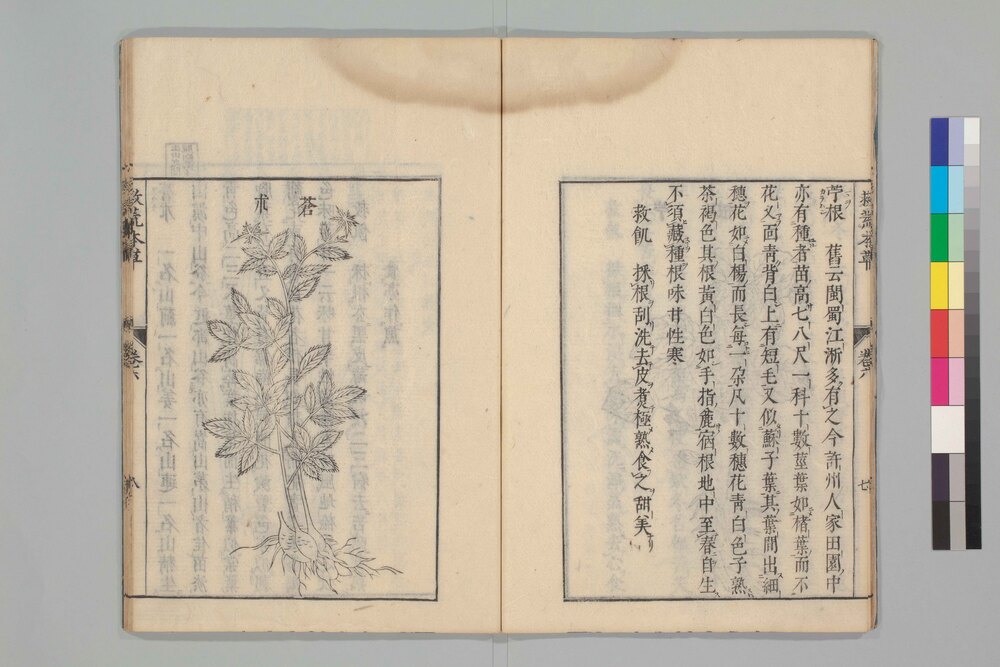 救荒本草
卷六
七
苧根　舊云閩蜀江浙多有之今許州人家田園中
亦有種者苗高七八尺一科十數莖葉如楮葉而不
花叉面青背白上有短毛又似蘇子葉其葉間出細
穗花如白楊而長每一朶凡十數穗花青白色子熟
茶褐色其根黃白色如手指麄宿根地中至春自生
不須藏種根味甘性寒
救飢　採根刮洗去皮煮極熟食之甜美
蒼
朮
救荒本草
卷六
八